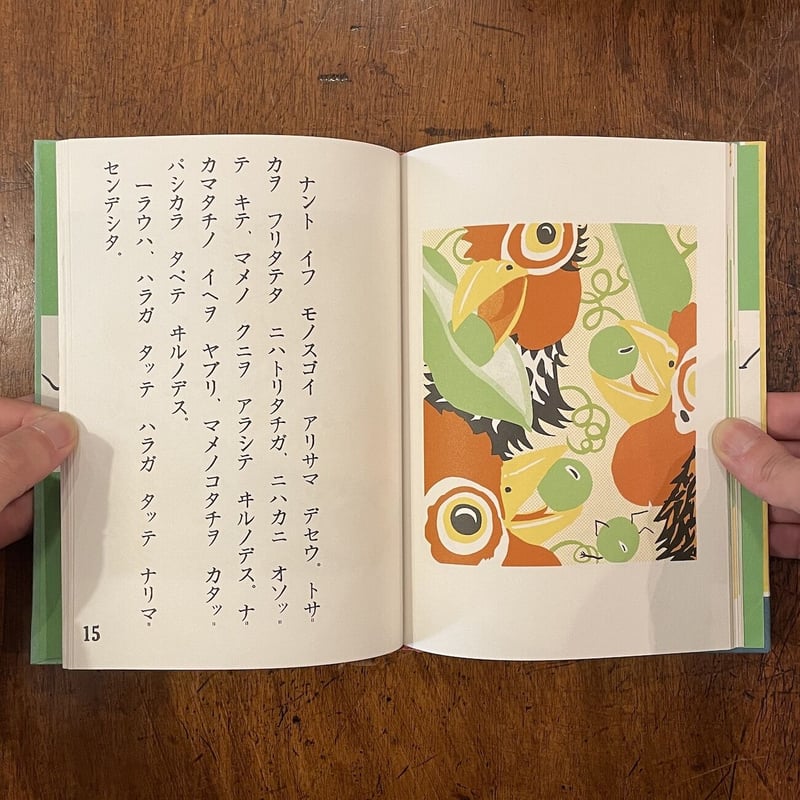 ナント イフ モノスゴイ アリサマ デセウ。トサ゠
カヲ フリタテタ ニハトリタチガ、ニハカニ オソッ゠
テ キテ、マメノ クニヲ アラシテ ヰルノデス。ナ゠
カマタチノ イヘヲ ヤブリ、マメノコタチヲ カタッ゠
パシカラ タベテ ヰルノデス。
一ラウハ、ハラガ タッテ ハラガ タッテ ナリマ゠
センデシタ。
15